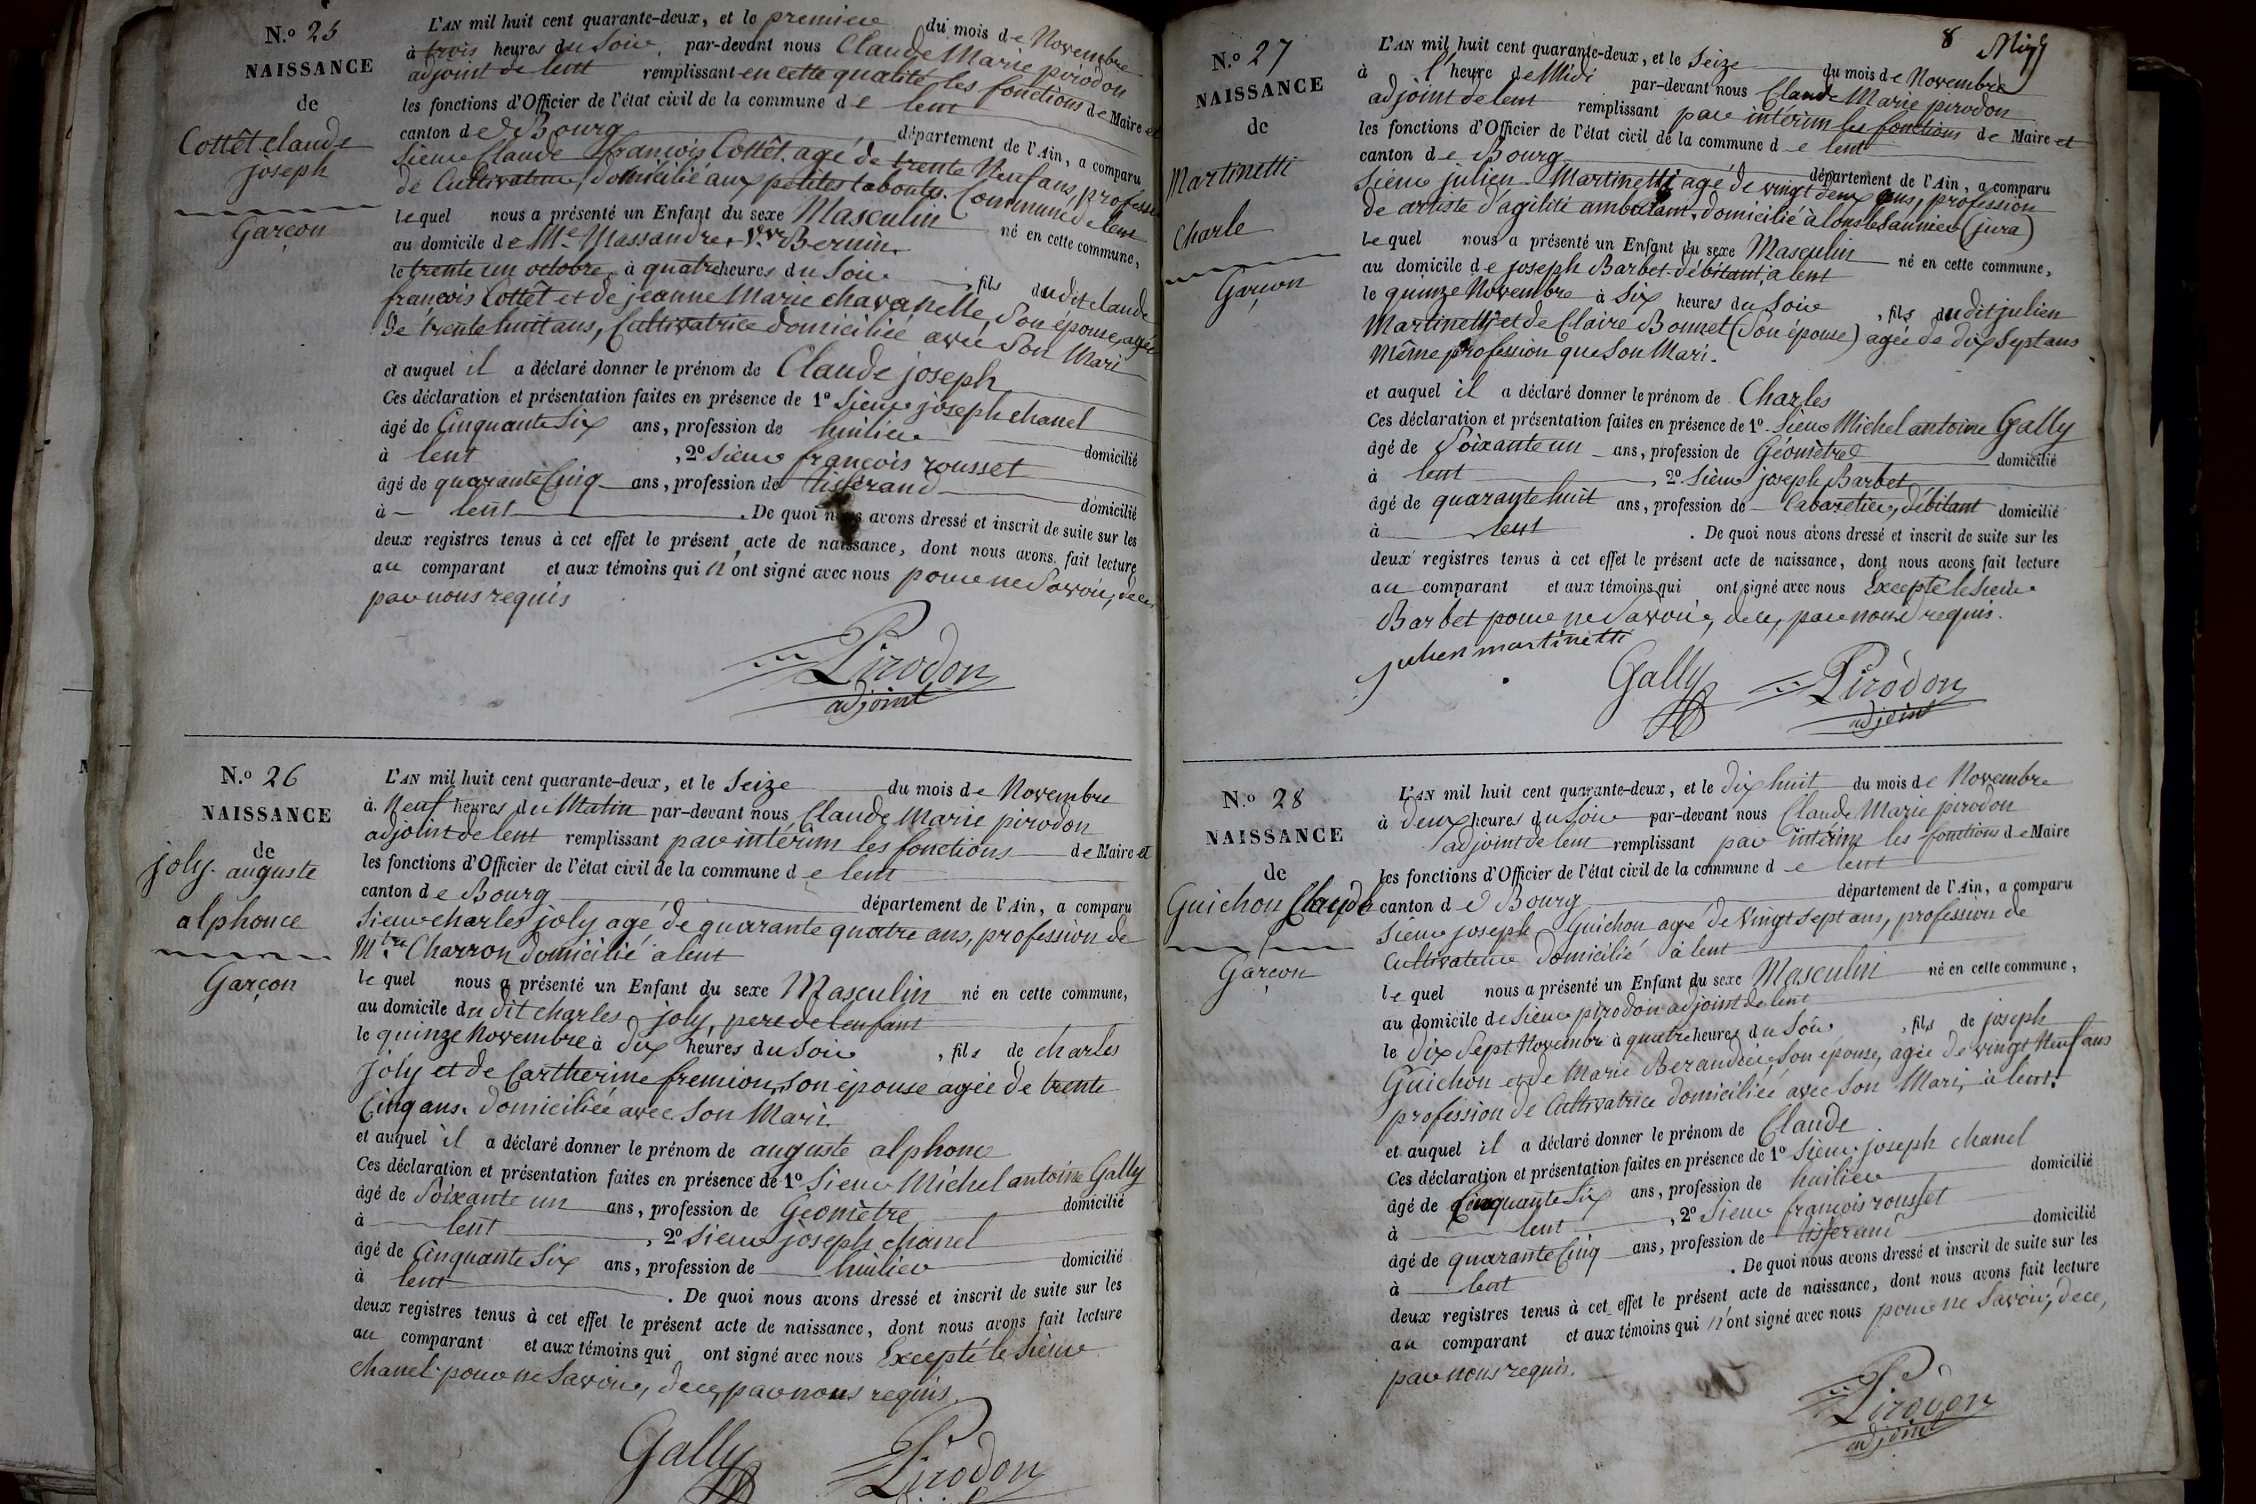 N.º 25
NAISSANCE
de
Cottêt claude
joseph
Garçon
L'AN mil huit cent quarante-deux, et le premier du mois de Novembre
à trois heures du Soir, par-devant nous Claude Marie pirodon
adjoint de lent remplissant en cette qualité les fonctions de Maire et
les fonctions d'Officier de l'état civil de la commune de lent
canton de Bourg département de l'Ain, a comparu
Sieur Claude françois Cottêt agé de trente Neuf ans, profession
de Cultivateur, domicilié aux petites tabouts. Commune de lent
lequel nous a présenté un Enfant du sexe Masculin né en cette commune,
au domicile de Me. Massandre Vve Bernin.
le trente un octobre, à quatre heures du Soir, fils du dit claude
françois Cottêt et de jeanne Marie chavanelle, Son épouse, agée
de trente huit ans, Cultivatrice domiciliée avec Son Mari
et auquel il a déclaré donner le prénom de Claude joseph
Ces déclaration et présentation faites en présence de 1º Sieur joseph chanel
âgé de Cinquante Six ans, profession de huilier
à lent domicilié
, 2º Sieur françois rousset
âgé de quarante Cinq ans, profession de tisserand
à lent domicilié
. De quoi nous avons dressé et inscrit de suite sur les
deux registres tenus à cet effet le présent acte de naissance, dont nous avons fait lecture
au comparant et aux témoins qui n'ont signé avec nous pour ne Savoir, de ce,
par nous requis
Pirodon
adjoint
N.º 26
NAISSANCE
de
joly auguste
alphonce
Garçon
L'AN mil huit cent quarante-deux, et le Seize du mois de Novembre
à Neuf heures du Matin par-devant nous Claude Marie pirodon
adjoint de lent remplissant par intérim les fonctions de Maire et
les fonctions d'Officier de l'état civil de la commune de lent
canton de Bourg département de l'Ain, a comparu
Sieur charles joly agé de quarante quatre ans, profession de
Mtre. Charron domicilié à lent
le quel nous a présenté un Enfant du sexe Masculin né en cette commune,
au domicile du dit charles joly, pere de lenfant
le quinze Novembre à dix heures du Soir, fils de charles
joly et de Cartherine fremion, Son épouse agée de trente
Cinq ans. domiciliée avec Son Mari.
et auquel il a déclaré donner le prénom de auguste alphonce
Ces déclaration et présentation faites en présence de 1º Sieur Michel antoine Gally
âgé de Soixante un ans, profession de Geomètre domicilié
à lent, 2º Sieur joseph chanel
âgé de Cinquante Six ans, profession de huilier domicilié
à lent. De quoi nous avons dressé et inscrit de suite sur les
deux registres tenus à cet effet le présent acte de naissance, dont nous avons fait lecture
au comparant et aux témoins qui ont signé avec nous Excepté le Sieur
chanel pour ne Savoir, de ce, par nous requis.
Gally Pirodon
8
N.º 27
NAISSANCE
de
Martinetti
Charle
Garçon
L'AN mil huit cent quarante-deux, et le Seize du mois de Novembre
à l'heure de Midi par-devant nous Claude Marie pirodon
adjoint de lent remplissant par intérim les fonctions de Maire et
les fonctions d'Officier de l'état civil de la commune de lent
canton de Bourg département de l'Ain, a comparu
Sieur julien Martinetti agé de vingt deux ans, profession
de artiste d'agilité ambulant, domicilié à lons le saunier (jura)
le quel nous a présenté un Enfant du sexe Masculin né en cette commune,
au domicile de joseph Barbet débitant, à lent
le quinze Novembre à Six heures du Soir, fils du dit julien
Martinetti et de Claire Bonnet (Son épouse) agée de dix Sept ans
Même profession que Son Mari.
et auquel il a déclaré donner le prénom de Charles
Ces déclaration et présentation faites en présence de 1º Sieur Michel antoine Gally
âgé de Soixante un ans, profession de Géomètre domicilié
à lent, 2º Sieur joseph Barbet
âgé de quarante huit ans, profession de Cabaretier, débitant domicilié
à lent. De quoi nous avons dressé et inscrit de suite sur les
deux registres tenus à cet effet le présent acte de naissance, dont nous avons fait lecture
au comparant et aux témoins qui ont signé avec nous Excepté le Sieur
Barbet pour ne Savoir, de ce, par nous requis.
julien martinetti
Gally Pirodon
adjoint
N.º 28
NAISSANCE
de
Guichon Claude
Garçon
L'AN mil huit cent quarante-deux, et le dix huit du mois de Novembre
à deux heures du Soir par-devant nous Claude Marie pirodon
adjoint de lent remplissant par intérim les fonctions de Maire
les fonctions d'Officier de l'état civil de la commune de lent
canton de Bourg département de l'Ain, a comparu
Sieur joseph Guichon agé de Vingt Sept ans, profession de
Cultivateur domicilié à lent
le quel nous a présenté un Enfant du sexe Masculin né en cette commune,
au domicile de Sieur pirodon adjoint de lent
le dix Sept Novembre à quatre heures du Soir, fils de joseph
Guichon et de Marie Berandier, Son épouse, agée de vingt Neuf ans
profession de Cultivatrice domiciliée avec Son Mari, à lent.
et auquel il a déclaré donner le prénom de Claude
Ces déclaration et présentation faites en présence de 1º Sieur joseph chanel
âgé de Cinquante Six ans, profession de huilier domicilié
à lent, 2º Sieur françois rousset
âgé de quarante Cinq ans, profession de tisserand domicilié
à lent. De quoi nous avons dressé et inscrit de suite sur les
deux registres tenus à cet effet le présent acte de naissance, dont nous avons fait lecture
au comparant et aux témoins qui n'ont signé avec nous pour ne Savoir, de ce,
par nous requis.
Pirodon
adjoint